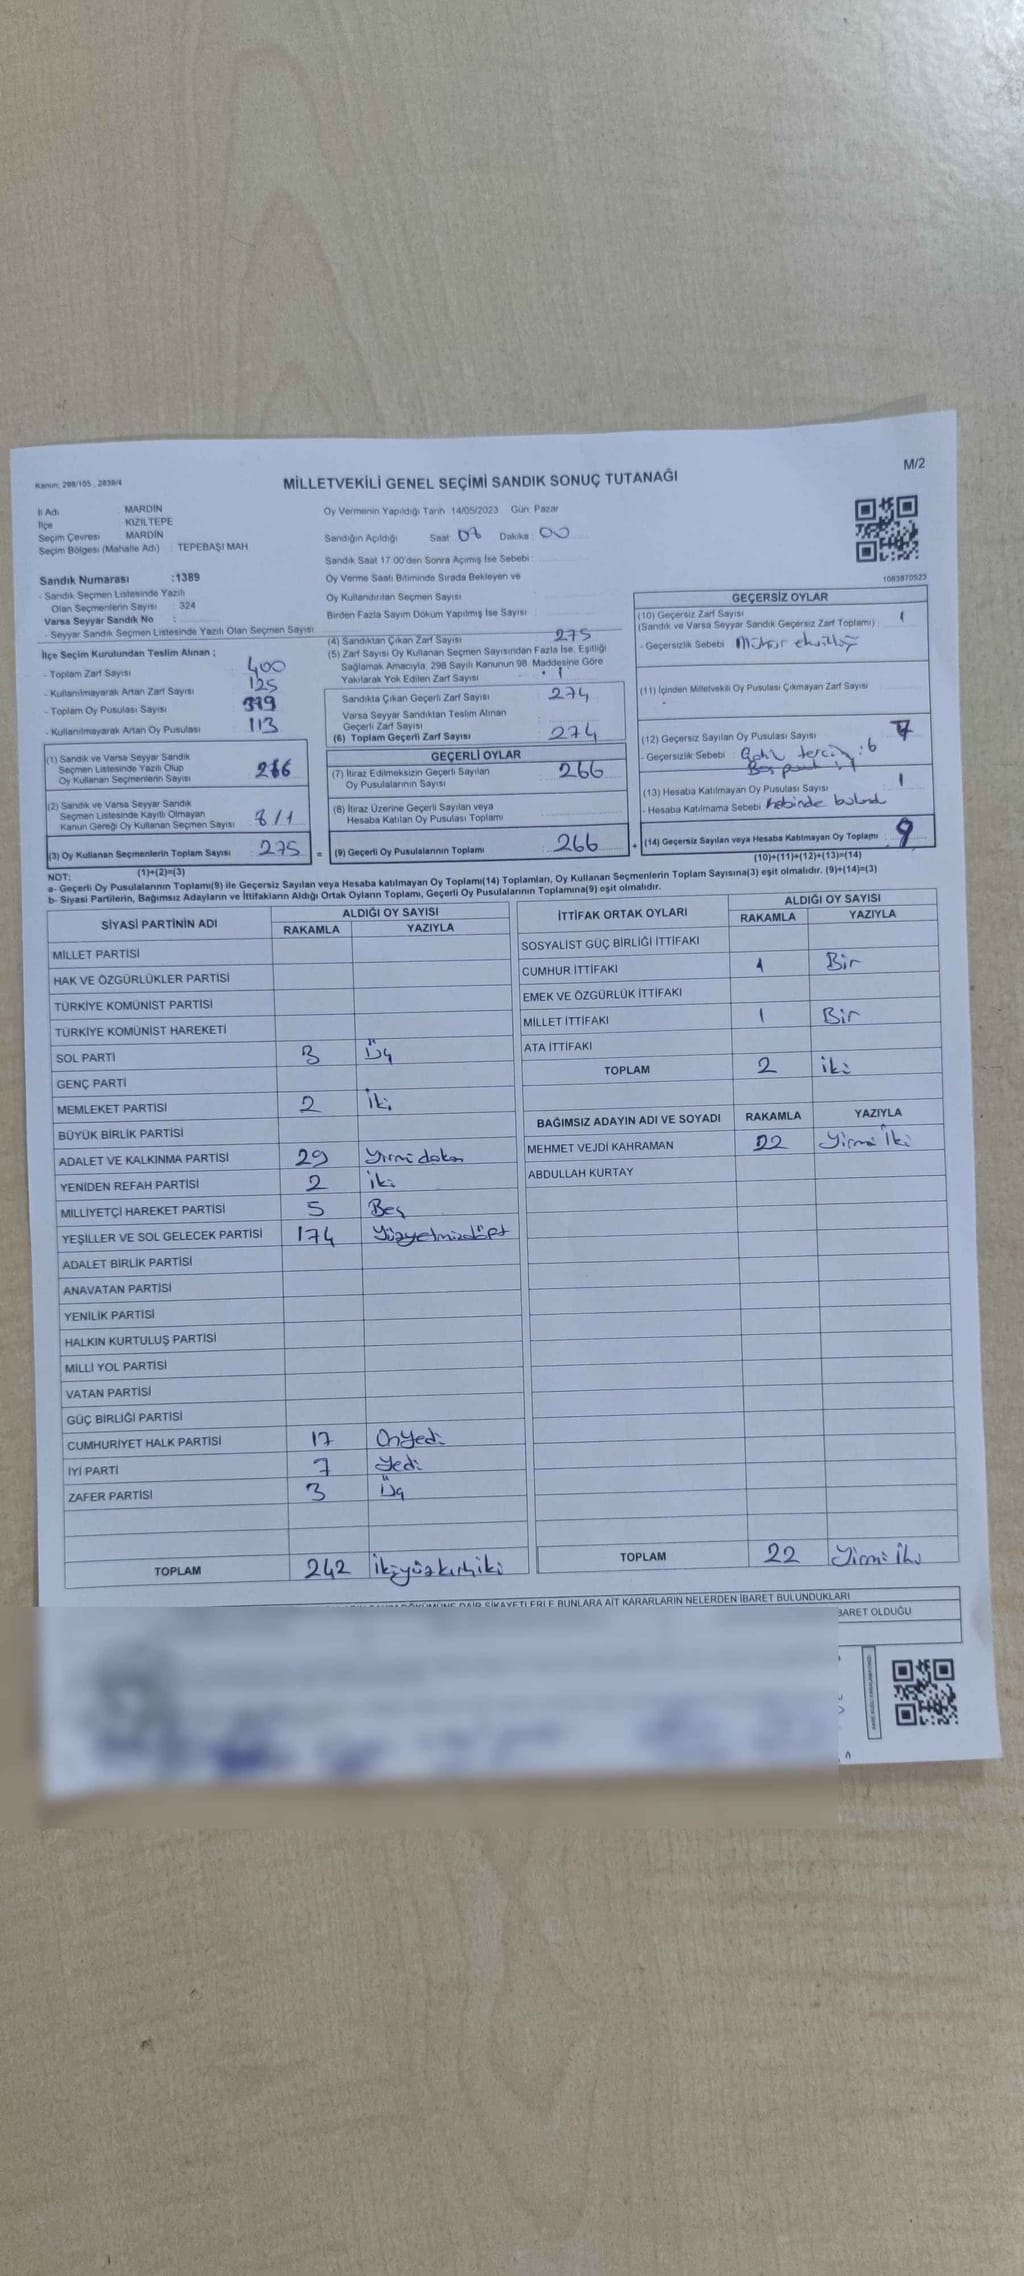 M/2
Kanun: 298/105 , 2839/4
MİLLETVEKİLİ GENEL SEÇİMİ SANDIK SONUÇ TUTANAĞI
İl Adı MARDİN
İlçe KIZILTEPE
Seçim Çevresi MARDİN
Seçim Bölgesi (Mahalle Adı) : TEPEBAŞI MAH
Oy Vermenin Yapıldığı Tarih 14/05/2023 Gün: Pazar
Sandığın Açıldığı Saat Dakika 00
Sandık Saat 17.00'den Sonra Açımış İse Sebebi :
Oy Verme Saati Bitiminde Sırada Bekleyen ve
Oy Kullandırılan Seçmen Sayısı
Birden Fazla Sayım Döküm Yapılmış İse Sayısı
1083870523
Sandık Numarası :1389
- Sandık Seçmen Listesinde Yazılı
Olan Seçmenlerin Sayısı : 324
Varsa Seyyar Sandık No :
- Seyyar Sandık Seçmen Listesinde Yazılı Olan Seçmen Sayısı
İlçe Seçim Kurulundan Teslim Alınan ;
- Toplam Zarf Sayısı 400
- Kullanılmayarak Artan Zarf Sayısı 125
- Toplam Oy Pusulası Sayısı
- Kullanılmayarak Artan Oy Pusulası 113
(1) Sandık ve Varsa Seyyar Sandık
Seçmen Listesinde Yazılı Olup
Oy Kullanan Seçmenlerin Sayısı 266
(2) Sandık ve Varsa Seyyar Sandık
Seçmen Listesinde Kayıtlı Olmayan
Kanun Gereği Oy Kullanan Seçmen Sayısı 8/1
(3) Oy Kullanan Seçmenlerin Toplam Sayısı : 275 =
(1)+(2)=(3)
(4) Sandıktan Çıkan Zarf Sayısı 275
(5) Zarf Sayısı Oy Kullanan Seçmen Sayısından Fazla İse, Eşitliği
Sağlamak Amacıyla, 298 Sayılı Kanunun 98. Maddesine Göre
Yakılarak Yok Edilen Zarf Sayısı 1
Sandıkta Çıkan Geçerli Zarf Sayısı 274
Varsa Seyyar Sandıktan Teslim Alınan
Geçerli Zarf Sayısı
(6) Toplam Geçerli Zarf Sayısı 274
GEÇERLİ OYLAR
(7) İtiraz Edilmeksizin Geçerli Sayılan
Oy Pusulalarının Sayısı 266
(8) İtiraz Üzerine Geçerli Sayılan veya
Hesaba Katılan Oy Pusulası Toplamı
(9) Geçerli Oy Pusulalarının Toplamı : 266 +
GEÇERSİZ OYLAR
(10) Geçersiz Zarf Sayısı 1
(Sandık ve Varsa Seyyar Sandık Geçersiz Zarf Toplamı)
- Geçersizlik Sebebi Mühür eksikliği
(11) İçinden Milletvekili Oy Pusulası Çıkmayan Zarf Sayısı
(12) Geçersiz Sayılan Oy Pusulası Sayısı 7
- Geçersizlik Sebebi : tercih : 6
(13) Hesaba Katılmayan Oy Pusulası Sayısı 1
- Hesaba Katılmama Sebebi Kabinde
(14) Geçersiz Sayılan veya Hesaba Katılmayan Oy Toplamı : 9
(10)+(11)+(12)+(13)=(14)
NOT:
a- Geçerli Oy Pusulalarının Toplamı(9) ile Geçersiz Sayılan veya Hesaba katılmayan Oy Toplamı(14) Toplamları, Oy Kullanan Seçmenlerin Toplam Sayısına(3) eşit olmalıdır. (9)+(14)=(3)
b- Siyasi Partilerin, Bağımsız Adayların ve İttifakların Aldığı Ortak Oyların Toplamı, Geçerli Oy Pusulalarının Toplamına(9) eşit olmalıdır.
SİYASİ PARTİNİN ADI ALDIĞI OY SAYISI
RAKAMLA YAZIYLA
MİLLET PARTİSİ
HAK VE ÖZGÜRLÜKLER PARTİSİ
TÜRKİYE KOMÜNİST PARTİSİ
TÜRKİYE KOMÜNİST HAREKETİ
SOL PARTİ 3 Üç
GENÇ PARTİ
MEMLEKET PARTİSİ 2 İki
BÜYÜK BİRLİK PARTİSİ
ADALET VE KALKINMA PARTİSİ 29 Yirmidokuz
YENİDEN REFAH PARTİSİ 2 İki
MİLLİYETÇİ HAREKET PARTİSİ 5 Beş
YEŞİLLER VE SOL GELECEK PARTİSİ 174 Yüzyetmişdört
ADALET BİRLİK PARTİSİ
ANAVATAN PARTİSİ
YENİLİK PARTİSİ
HALKIN KURTULUŞ PARTİSİ
MİLLİ YOL PARTİSİ
VATAN PARTİSİ
GÜÇ BİRLİĞİ PARTİSİ
CUMHURİYET HALK PARTİSİ 17 Onyedi
İYİ PARTİ 7 Yedi
ZAFER PARTİSİ 3 Üç
TOPLAM 242 İkiyüzkırkiki
İTTİFAK ORTAK OYLARI ALDIĞI OY SAYISI
RAKAMLA YAZIYLA
SOSYALİST GÜÇ BİRLİĞİ İTTİFAKI
CUMHUR İTTİFAKI 1 Bir
EMEK VE ÖZGÜRLÜK İTTİFAKI
MİLLET İTTİFAKI 1 Bir
ATA İTTİFAKI
TOPLAM 2 iki
BAĞIMSIZ ADAYIN ADI VE SOYADI RAKAMLA YAZIYLA
MEHMET VEJDİ KAHRAMAN 22 Yirmi İki
ABDULLAH KURTAY
TOPLAM 22 Yirmi İki
DÖKÜMÜNE DAİR ŞİKAYETLERLE BUNLARA AİT KARARLARIN NELERDEN İBARET BULUNDUKLARI
BARET OLDUĞU